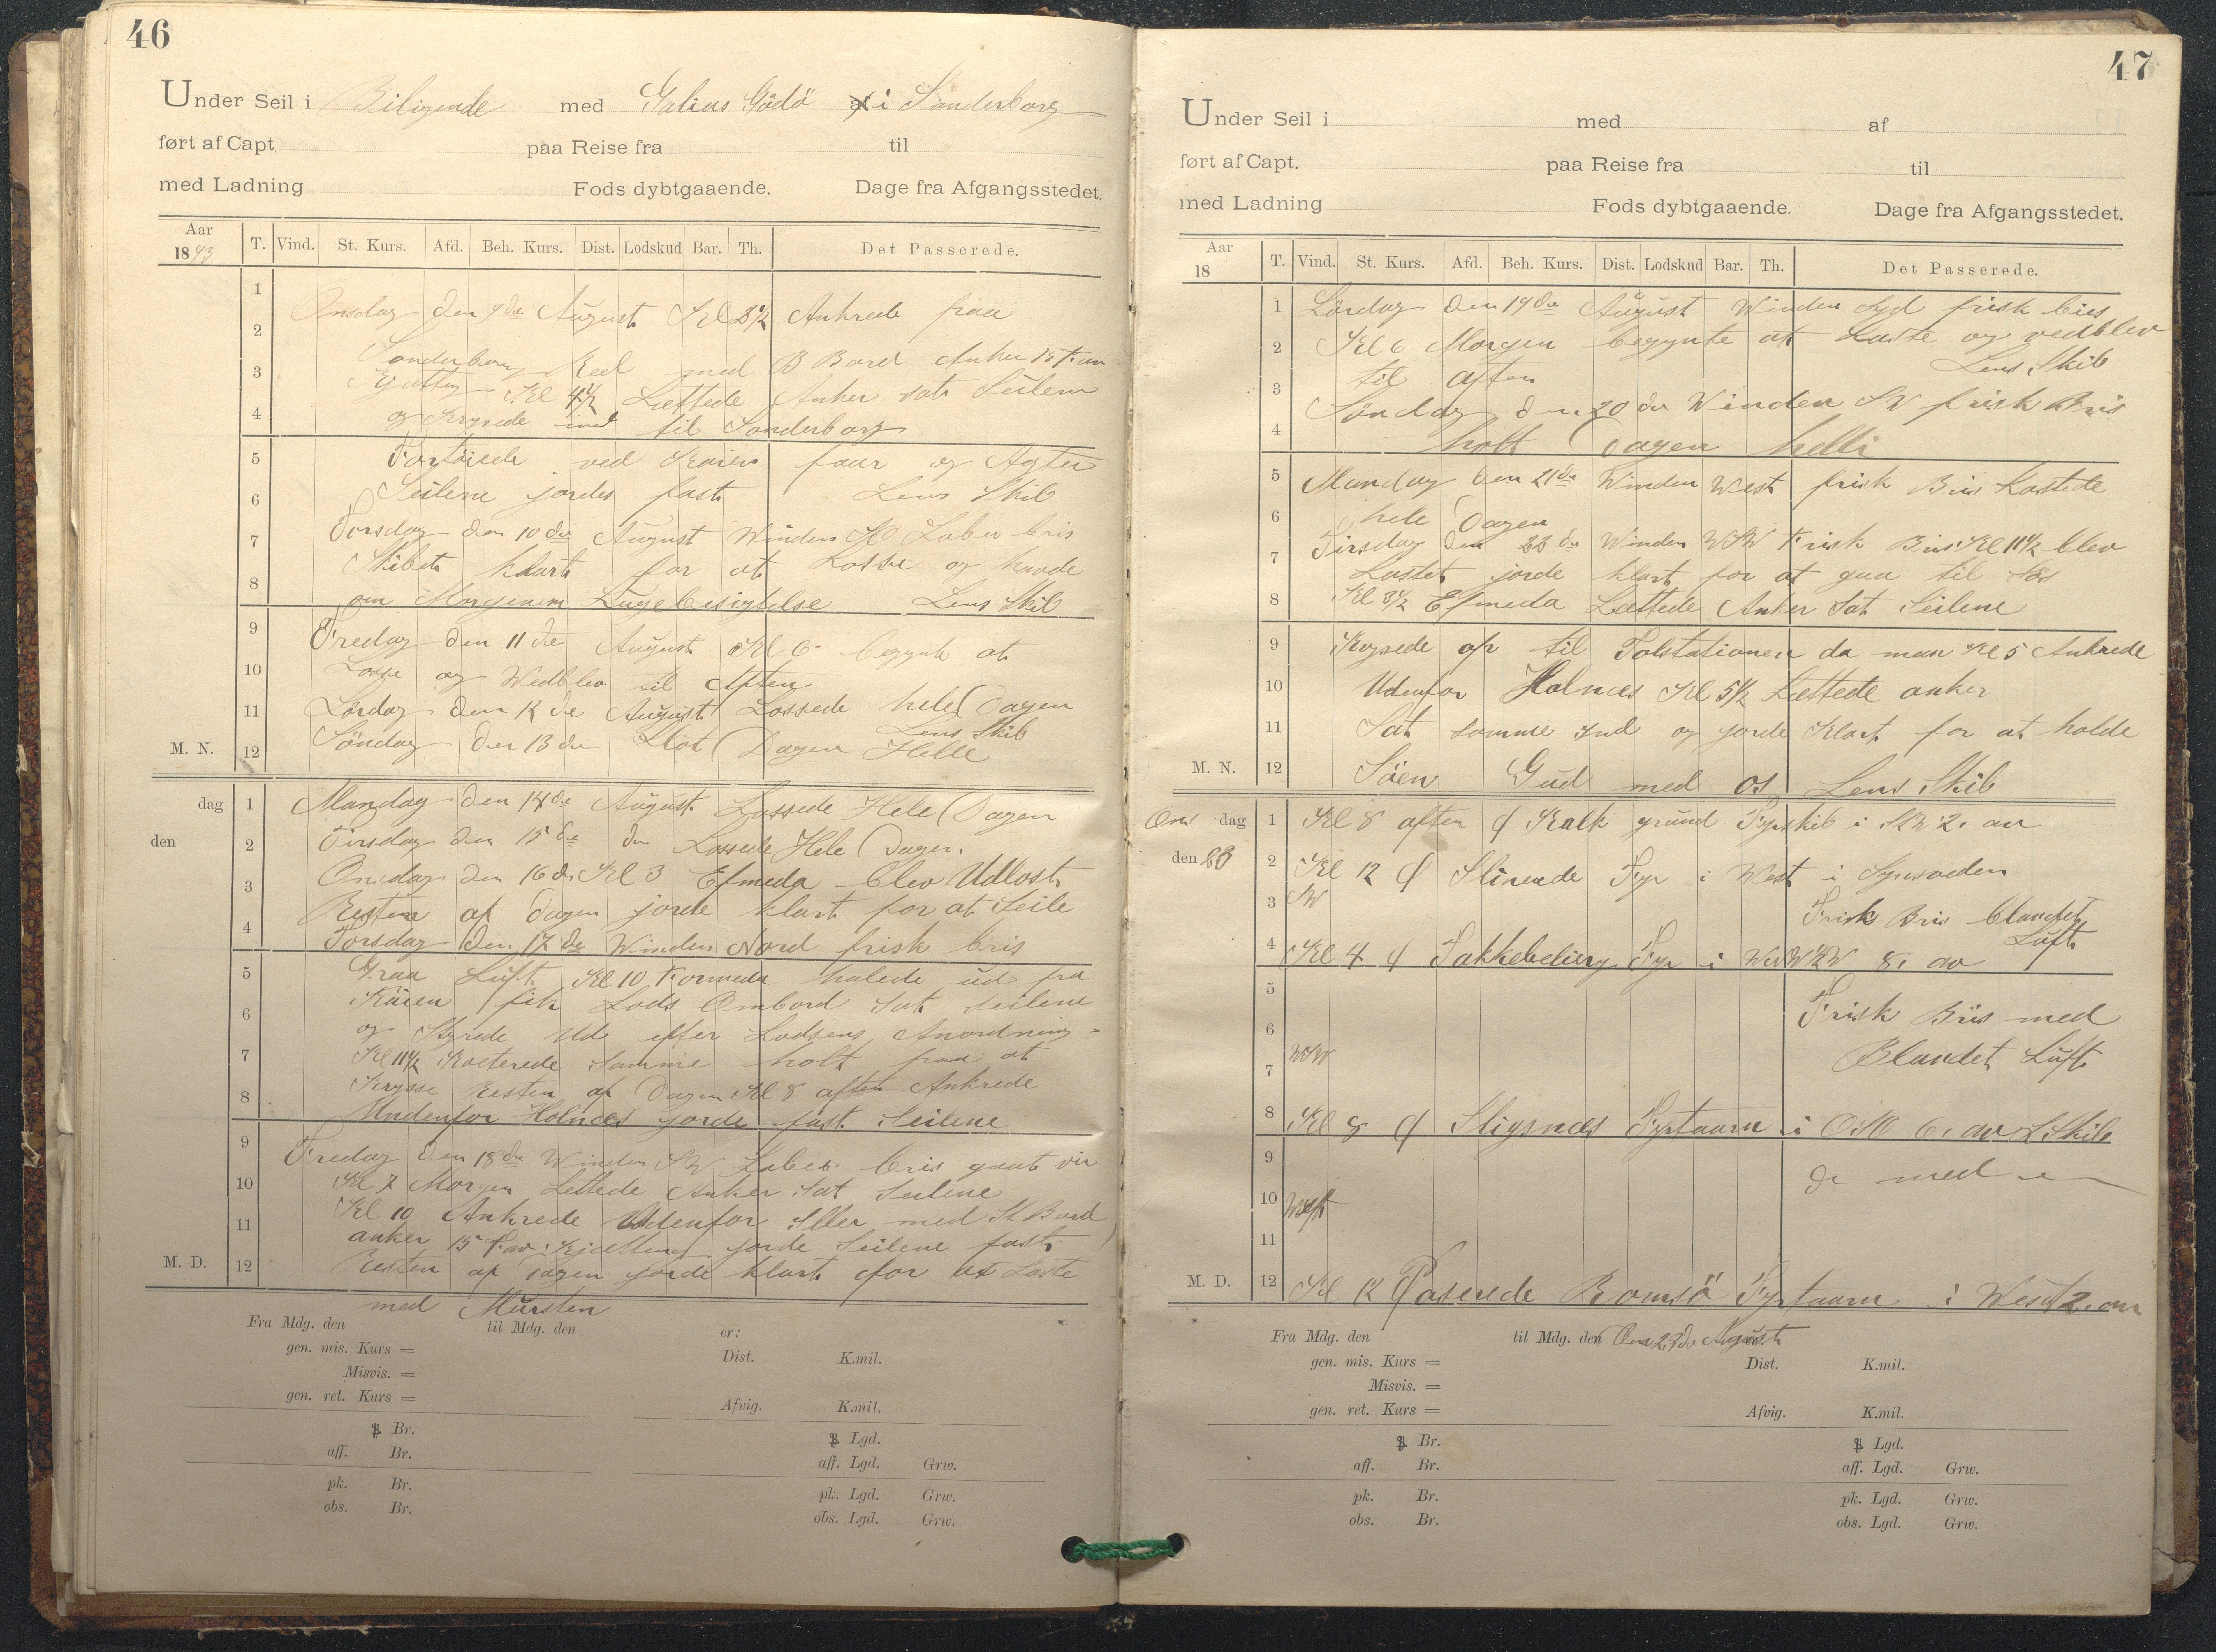 46
Under Seil i Biligende med Galias Gödö af i Sönderborg
ført af Capt. paa Reise fra til
med Ladning Fods dybtgaaende. Dage fra Afgangsstedet.
Aar 1893 T. Vind. St. Kurs. Afd. Beh. Kurs. Dist. Lodskud Bar. Th. Det Passerede.
1
Onsdag den 9de August Kl 3½ Ankrede paa
2
Sonderborg Red med B Bord Anker 15 Fav
3
Kjætting Kl 4½ Lettede Anker sat Seilene
4
og Krysede ind til Sonderborg
5
Fortöiede ved Kaien faar og Agter
6
Seilene jordes fast Lens Skib
7
Torsdag den 10de August Winden SO Laber bris
Skibet klart for at Losse og havde
8
om Morgenen Lugebesigtelse Lens Skib
9
Fredag den 11de August Kl 6 begynte at
10
Losse og Wedblev til Aften
11
Lördag den 12de August Lossede hele Dagen
Lens Skib
M. N. 12
Söndag den 13de Hot Dagen Helle
dag 1
Mandag den 14de August Lossede Hele Dagen
den 2
Tirsdag den 15de do Lossede Hele Dagen.
3
Onsdag den 16de Kl 3 Efmeda blev Udlost
Resten af Dagen jorde klart for at Seile
4
Torsdag den 17de Winden Nord frisk bris
5
Graa Luft Kl 10 Formeda halede ud fra
Kaien fik Lods Ombord Sat Seilene
6
og Styrede Ud efter Lodsens Anordning
7
Kl 11½ Kvoterede Samme holt paa at
8
Krysse Resten af Dagen Kl 8 aften Ankrede
Undenfor Holnæs jorde fast Seilene
9
Fredag den 18de Winden SW Laber bris gaat vir
10
Kl 7 Morgen Lettede Anker Sat Seilene
11
Kl 10 Ankrede Udenfor Iller med St Bord
anker 15 Fav Kjætting jorde Seilene fast
M. D. 12
Resten af Dagen jorde klart for at Laste
med Mursten
Fra Mdg. den til Mdg. den er:
gen. mis. Kurs = Dist. K.mil.
Misvis. =
gen. ret. Kurs = Afvig. K.mil.
Br. Lgd.
aff. Br. aff. Lgd. Grw.
pk. Br. pk. Lgd. Grw.
obs. Br. obs. Lgd. Grw.
47
Under Seil i med af
ført af Capt. paa Reise fra til
med Ladning Fods dybtgaaende. Dage fra Afgangsstedet.
Aar 18 T. Vind. St. Kurs. Afd. Beh. Kurs. Dist. Lodskud Bar. Th. Det Passerede.
1
Lördag den 19de August Winden Syd frisk bris
2
Kl 6 Morgen begynte at Laste og vedblev
til aften Lens Skib
3
Söndag den 20de Winden SW frisk Bris
4
holt Dagen helli
5
Mandag den 21de Winden West frisk Bris Lastede
6
hele Dagen
7
Tirsdag den 22de Winden WSW Frisk Bris Kl 11½ blev
Lastet jorde klart for at gaa til Sös
8
Kl 3½ Efmeda Lettede Anker Sat Seilene
9
Krysede op til Tolstationen da man Kl 5 Ankrede
10
Udenfor Holnæs Kl 5½ Lettede anker
11
Sat samme Ind og jorde Klart for at holde
M. N. 12
Söen Gud med os Lens Skib
Ons dag 1
Kl 8 aften Kalk grund Fyrskib i 2. av
den 23 2
Kl 12 Slinende Fyr i West i Synsreden
3 SW
Frisk Bris blandet Luft
4
Kl 4 Takkebelierg Fyr i WNW½W 8. av
5
Frisk Bris med
6
7 WSW
Blandet Luft
8
Kl 8 Stigsnæs Fyrtaarn i OSO 6. av L Skib
9
Do med
10 West
11
M. D. 12
Kl 12 Paserede Romsö Fyrtaarn i West 2. av
Fra Mdg. den til Mdg. den Ons 23de August
gen. mis. Kurs = Dist. K.mil.
Misvis. =
gen. ret. Kurs = Afvig. K.mil.
Br. Lgd.
aff. Br. aff. Lgd. Grw.
pk. Br. pk. Lgd. Grw.
obs. Br. obs. Lgd. Grw.